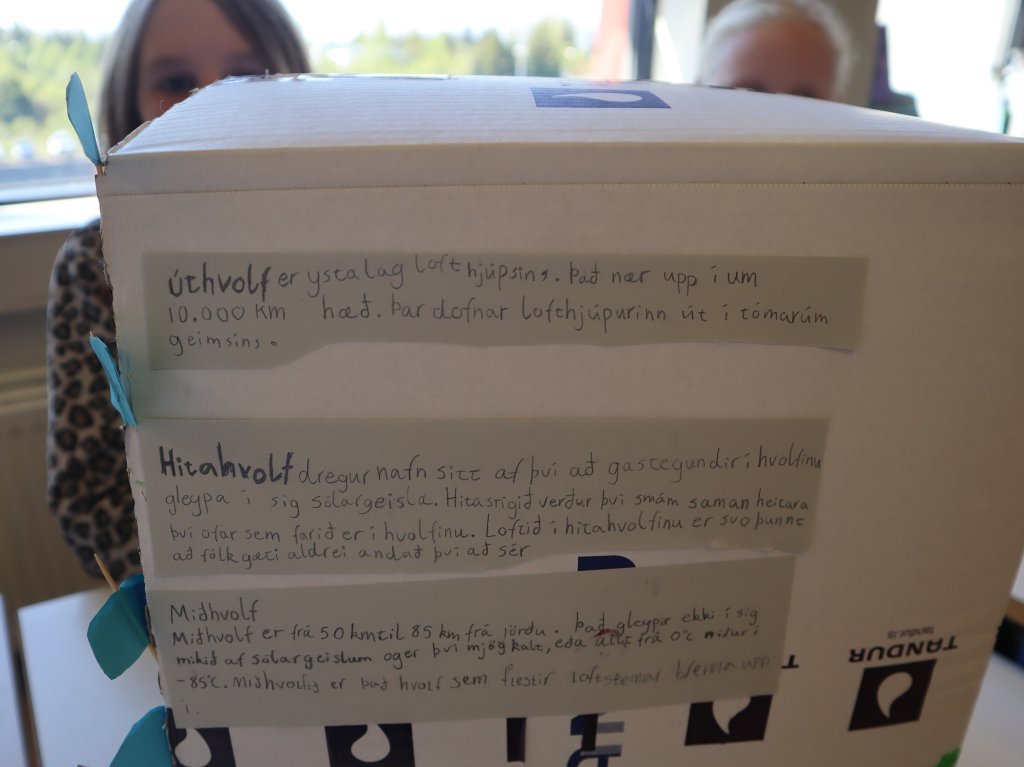 Úthvolf er ysta lag lofthjúpsins. Það nær upp í um
10.000 km hæð. Þar dofnar lofthjúpurinn út í tómarúm
geimsins.
Hitahvolf dregur nafn sitt af því að gastegundir í hvolfinu
gleypa í sig sólargeisla. Hitastigið verður því smám saman heitara
því ofar sem farið er í hvolfinu. Loftið í hitahvolfinu er svo þunnt
að fólk gæti aldrei andað því að sér
Miðhvolf
Miðhvolf er frá 50 km til 85 km frá jörðu. Það gleypir ekki í sig
mikið af sólargeislum og er því mjög kalt, eða allt frá 0°c niður í
-85°c. Miðhvolfið er það hvolf sem flestir loftsteinar brenna upp
í.
TANDUR
tandur.is